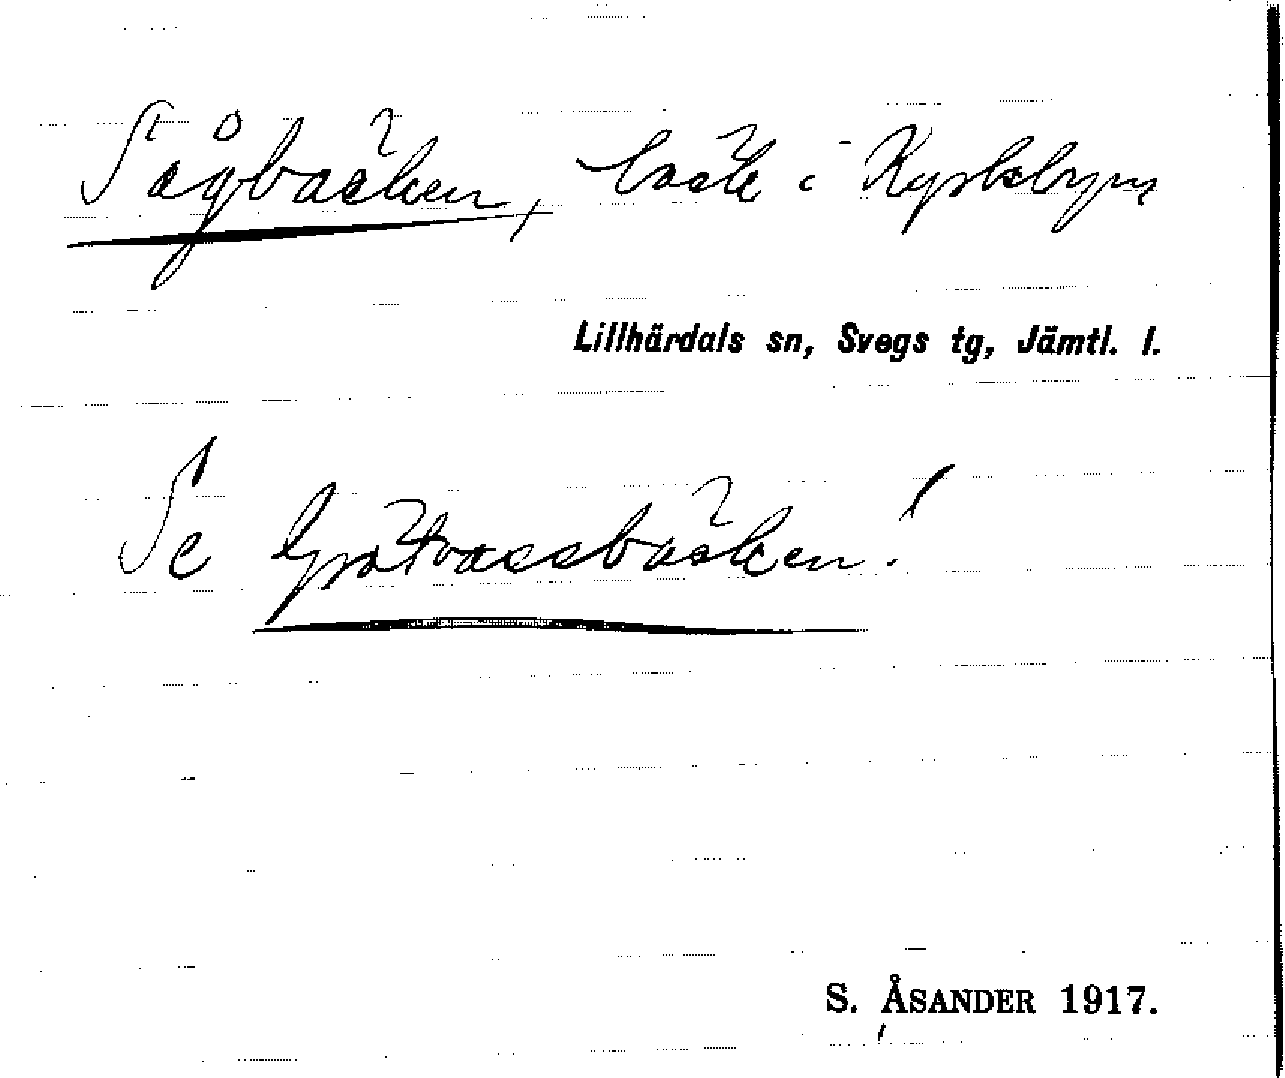 Sågbäcken, bäck i Kyrkbyn
Lillhärdals sn, Svegs tg, Jämtl. l.
Se Grätvassbäcken!
S. ÅSANDER 1917.